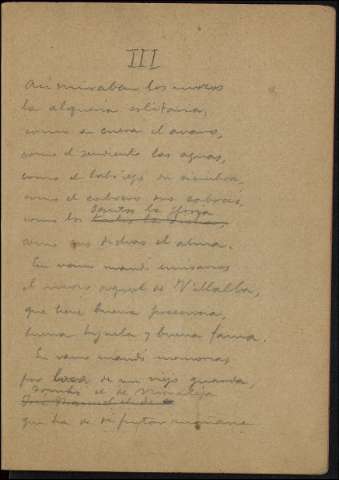 III
Así miraban los mozos
la alquería solitaria,
como su cueva el avaro,
como el sediento las aguas,
como el labriego su siembra,
como el cabrero sus cabras,
como los santos la gloria
como sus dichas el alma.
En vano mandó emisarios
el mozo aquel de Villalba,
que tiene buena presencia,
buena hijuela y buena fama.
En vano mandó memorias
por boca de un viejo guarda,
Tomás el de
que ha de diputar mañana